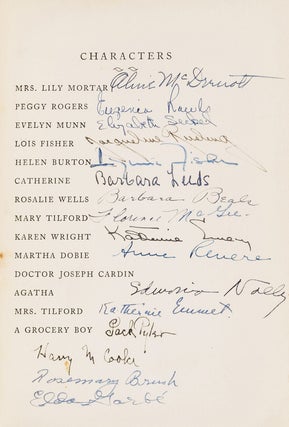 CHARACTERS
MRS. LILY MORTAR Aline McDermott
PEGGY ROGERS Eugenia Rawls
EVELYN MUNN Elizabeth Seckel
LOIS FISHER Jacqueline Rusling
HELEN BURTON
CATHERINE Barbara Leeds
ROSALIE WELLS Barbara Beals
MARY TILFORD Florence McGee
KAREN WRIGHT Katherine Emery
MARTHA DOBIE Anne Revere
DOCTOR JOSEPH CARDIN
AGATHA Edmonia Nolley
MRS. TILFORD Katherine Emmet
A GROCERY BOY Jack Tyler
Harry M Cooke
Rosemary Brush
Elda Garbé